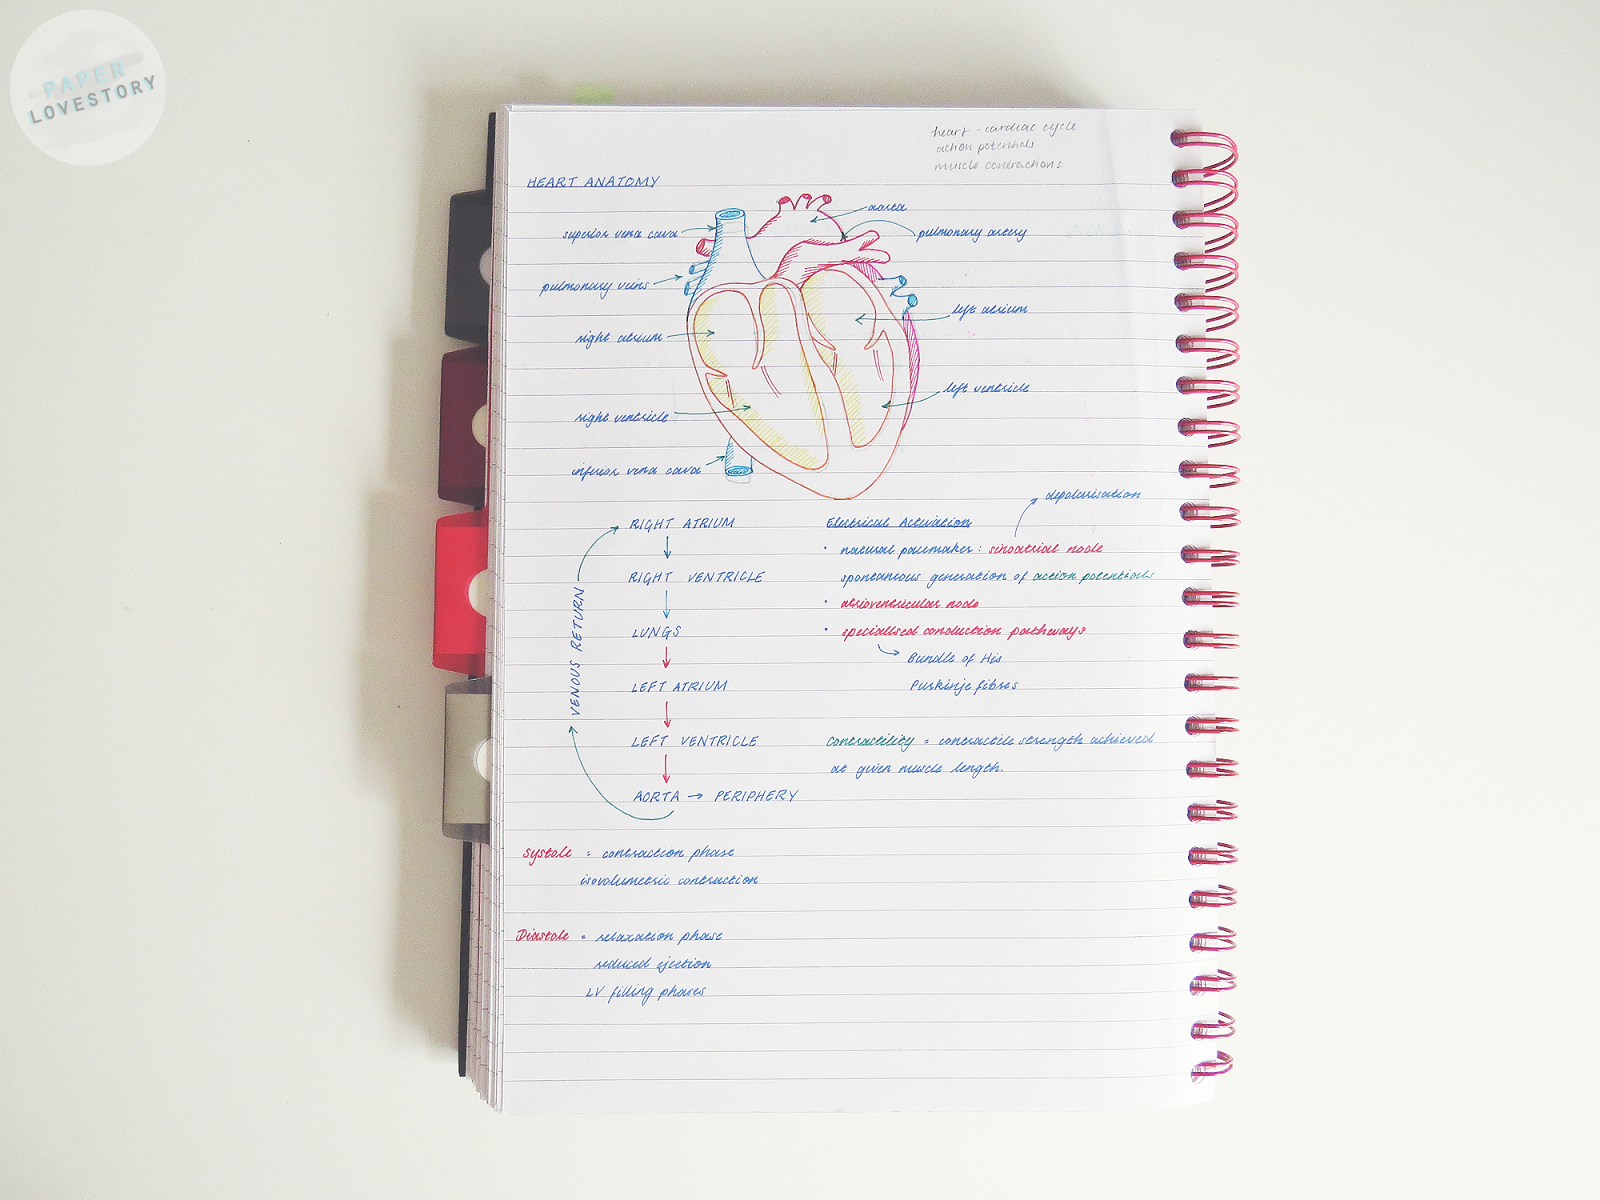 PAPER
LOVESTORY
heart - cardiac cycle
action potentials
muscle contractions
HEART ANATOMY
aorta
superior vena cava
pulmonary artery
pulmonary veins
left atrium
right atrium
left ventricle
right ventricle
inferior vena cava
depolarisation
RIGHT ATRIUM
RIGHT VENTRICLE
LUNGS
LEFT ATRIUM
LEFT VENTRICLE
AORTA → PERIPHERY
VENOUS RETURN
Electrical Activation
• natural pacemaker : sinoatrial node
spontaneous generation of action potentials
• atrioventricular node
• specialised conduction pathways
Bundle of His
Purkinje fibres
Contractility = contractile strength achieved
at given muscle length.
Systole = contraction phase
isovolumetric contraction
Diastole = relaxation phase
reduced ejection
LV filling phases